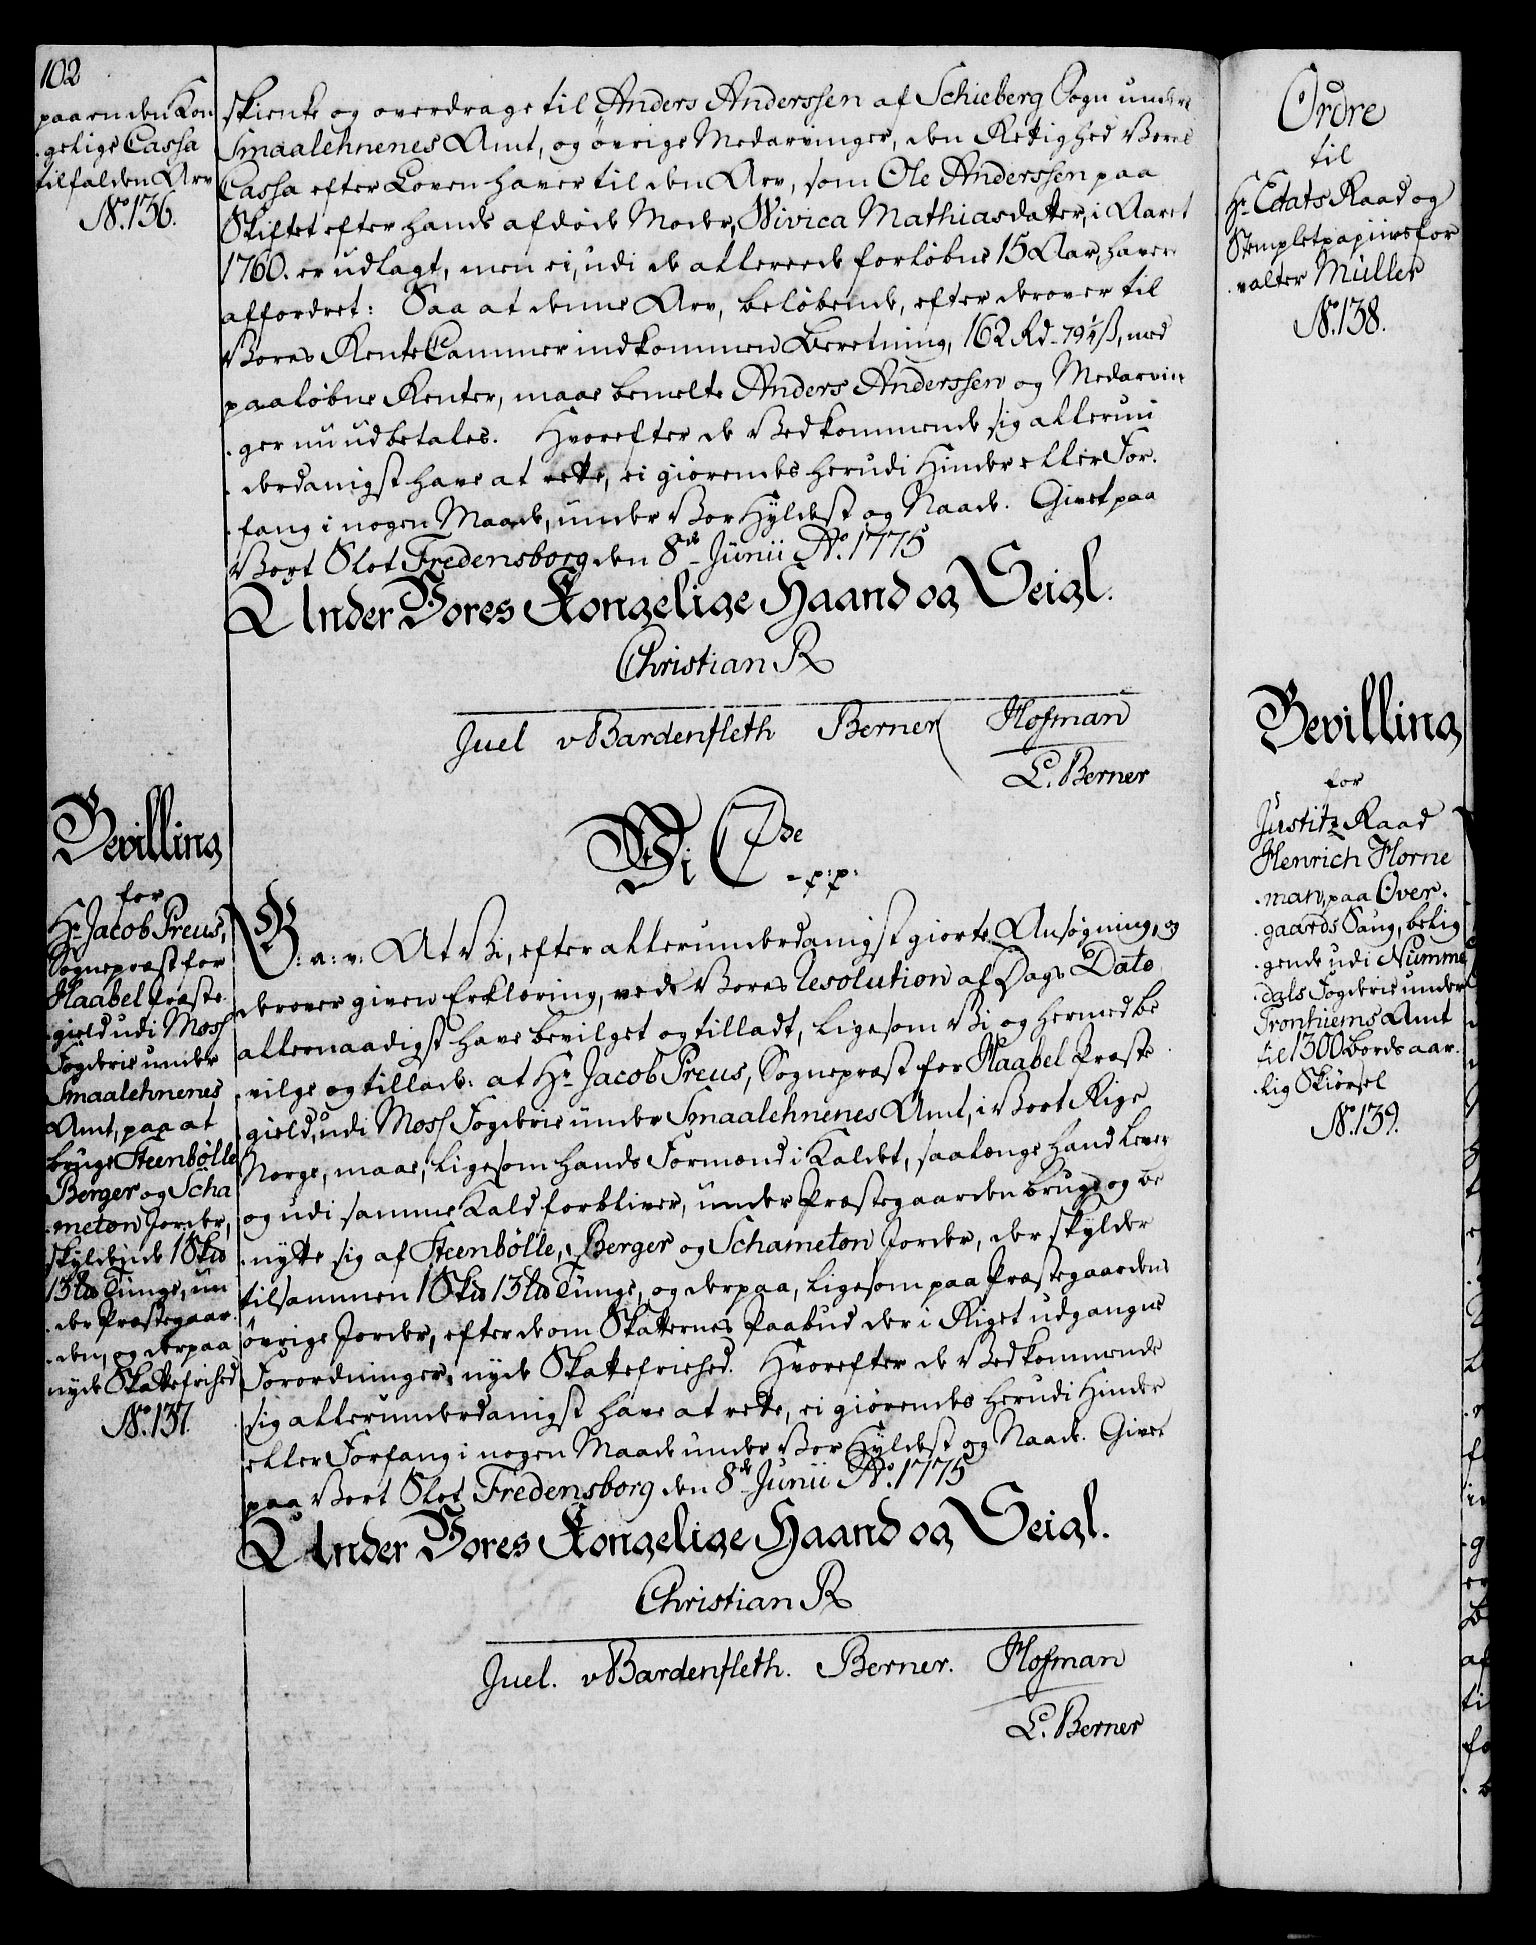 102
paa en den Kon
gelige Cassa
tilfalden Arv
No. 136.
skienke og overdrage til Anders Anderssen af Schieberg Sogn under
Smaalehnenes Amt, og øvrige Medarvinger, den Rettighed Vores
Cassa efter Loven haver til den Arv, som Ole Anderssen paa
Skiftet efter hands afdøde Moder, Wivica Mathiasdatter, i Aaret
1760. er udlagt, men ei, udi de allereede forløbne 15 Aar, haver
affordret: Saa at denne Arv, beløbende, efter derover til
Vores RenteCammer indkommen Beretning, 162 Rd. 79¼ ß, med
paaløbne Renter, maae bemelte Anders Anderssen og Medarvin
ger nu udbetales. Hvorefter de Vedkommende sig allerun
derdanigst have at rette, ei giørendes herudi Hinder eller For-
fang i nogen Maade, under Vor Hyldest og Naade. Givet paa
Vort Slot Fredensborg den 8de Junii Ao. 1775
Under Vores Kongelige Haand og Seigl.
Christian R
Juel vBardenfleth Berner Hofman
C. Berner
Bevilling
for
Hr. Jacob Preus,
Sognepræst for
Haabel Præste
gield udi Moss
Fogderie under
Smaalehnenes
Amt, paa at
bruge Steenbølle
Berger og Scha
meton Jorder,
skyldende 1 Skd
13 Ld Tunge, un
der Præstegaar
den, og derpaa
nyde Skattefrihed
No. 137.
Wi C 7de
- p: p:
G: a: v: At Vi, efter allerunderdanigst giorte Ansøgning, og
derover given Erklæring, ved Vores Resolution af Dags Dato
allernaadigst have bevilget og tilladt, ligesom Vi og hermed be
vilge og tillade: at Hr. Jacob Preus, Sognepræst for Haabel Præste
gield, udi Moss Fogderie under Smaalehnenes Amt, i Vort Rige
Norge, maae, ligesom hands Formænd i Kaldet, saalænge hand lever
og udi samme Kald forbliver, under Præstegaarden bruge og be
nytte sig af Steenbølle, Berger og Schameton Jorder, der skylder
tilsammen 1 Skd 13 Ld Tunge, og derpaa, ligesom paa Præstegaardens
øvrige Jorder, efter de om Skatternes Paabud der i Riget udgangne
Forordninger, nyde Skattefriehed. Hvorefter de Vedkommende
sig allerunderdanigst have at rette, ei giørendes herudi Hinder
eller Forfang i nogen Maade under Vor Hyldest og Naade. Givet
paa Vort Slot Fredensborg den 8de Junii Ao. 1775
Under Vores Kongelige Haand og Seigl.
Christian R
Juel. vBardenfleth. Berner. Hofman
C. Berner
Ordre
til
Hr. Etats Raad og
Stempletpapiirsfor
valter Müller
No. 138.
Bevilling
for
Justitz Raad
Henrich Horne
man, paa Over-
gaards Saug, belig
gende udi Numme
dals Fogderie under
Tronhiems Amt
til 1300 Bords aar-
lig Skiørsel
No. 139.